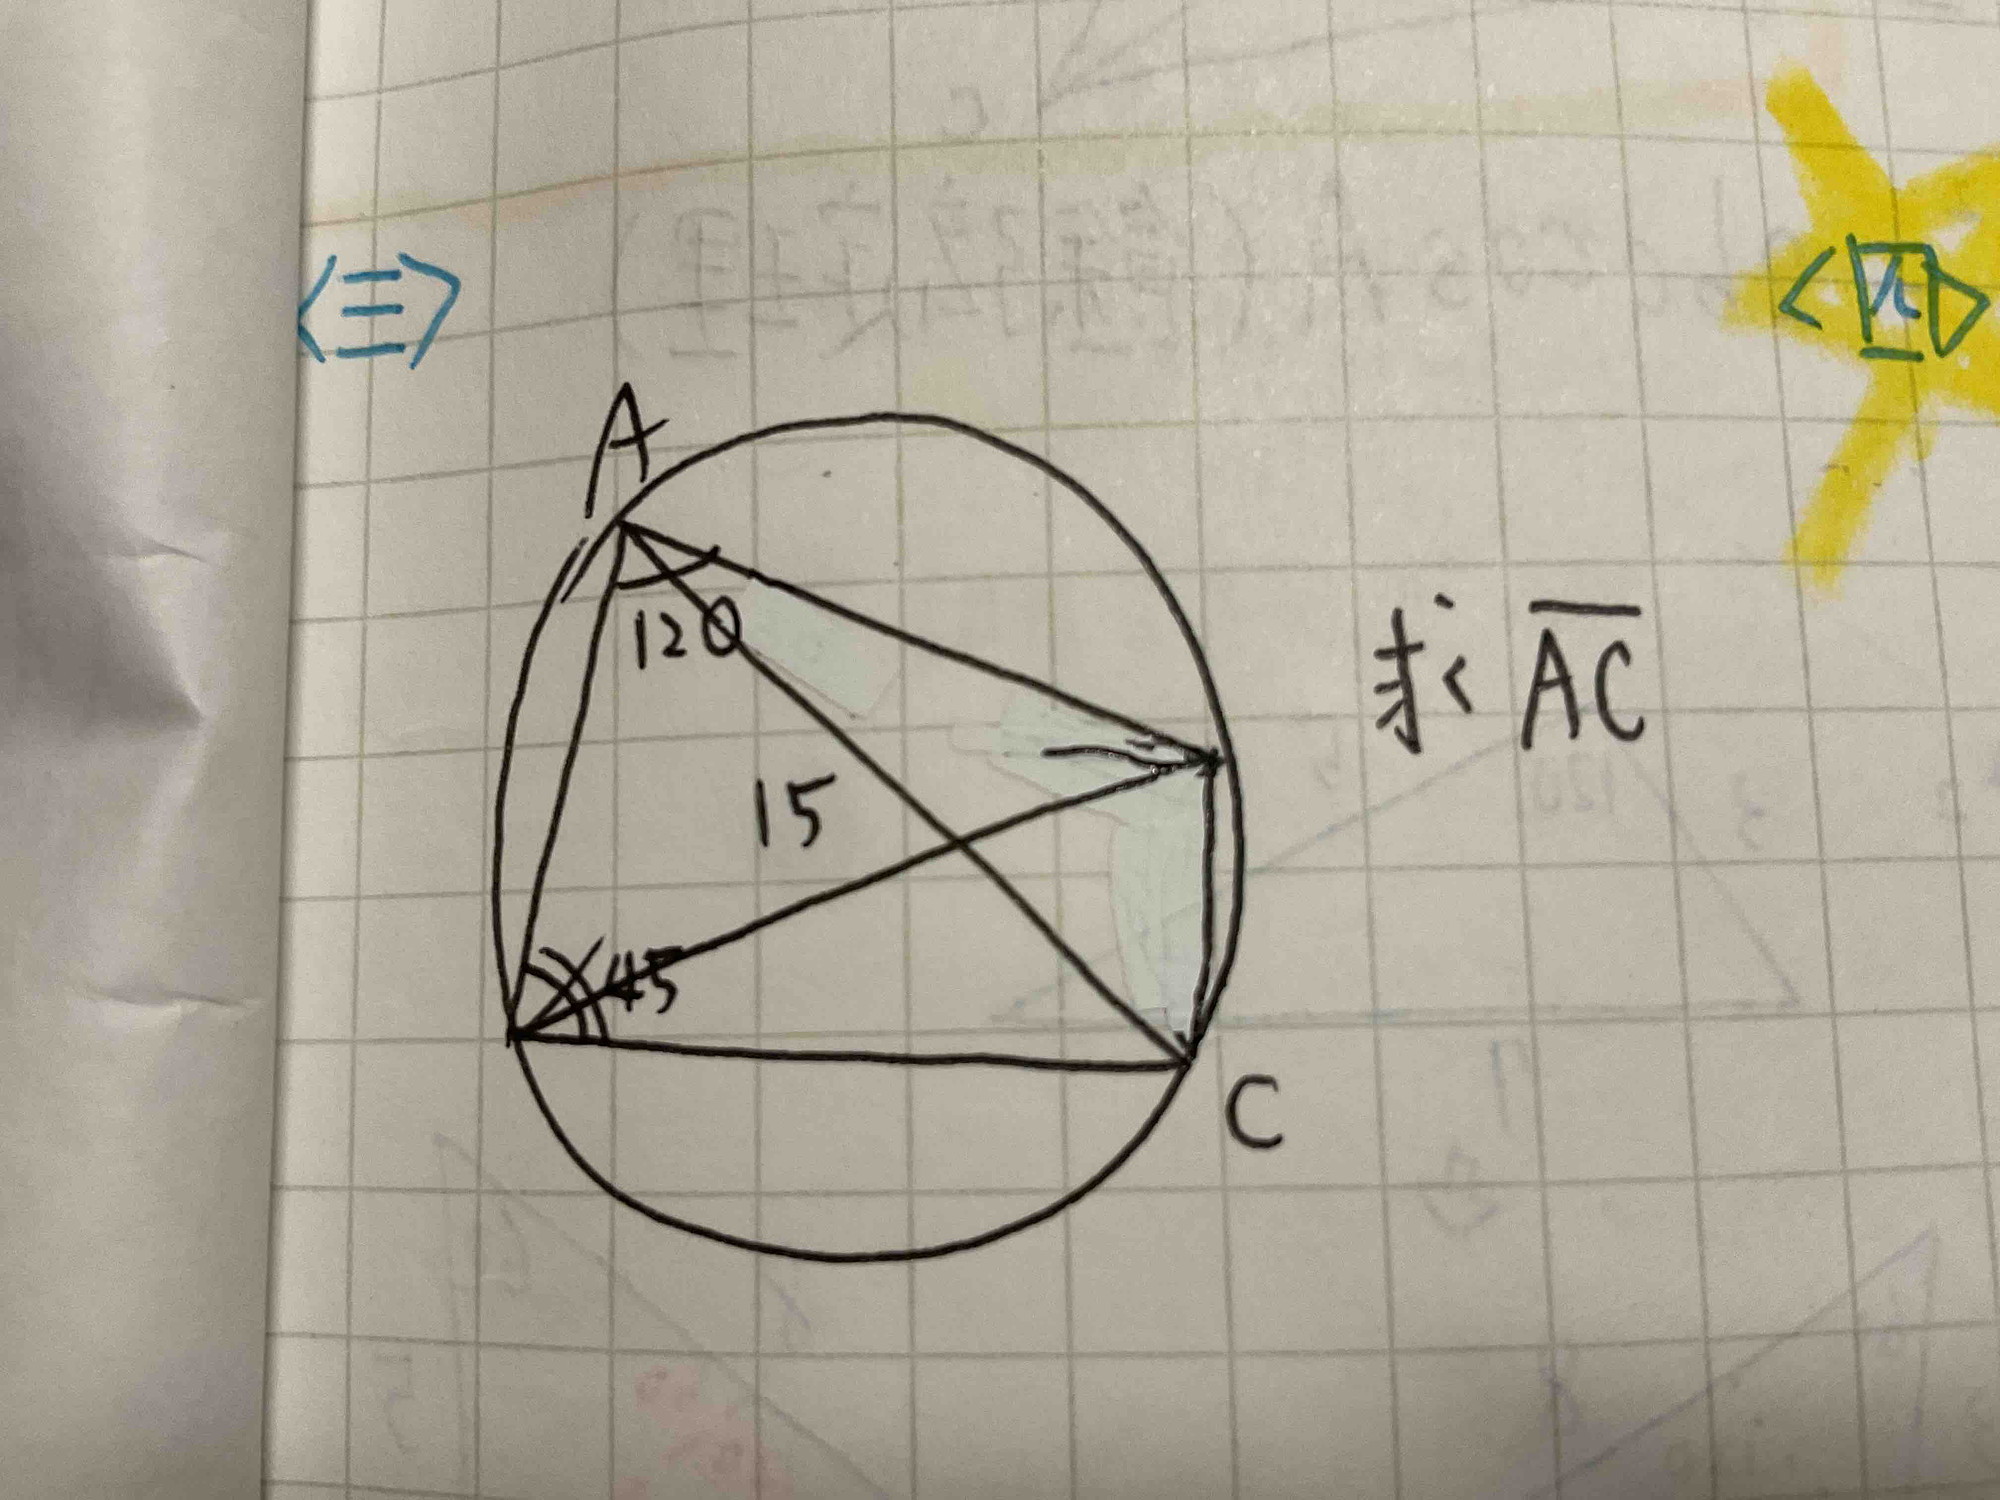 <三>
<四>
A
120
求 AC
15
45
C